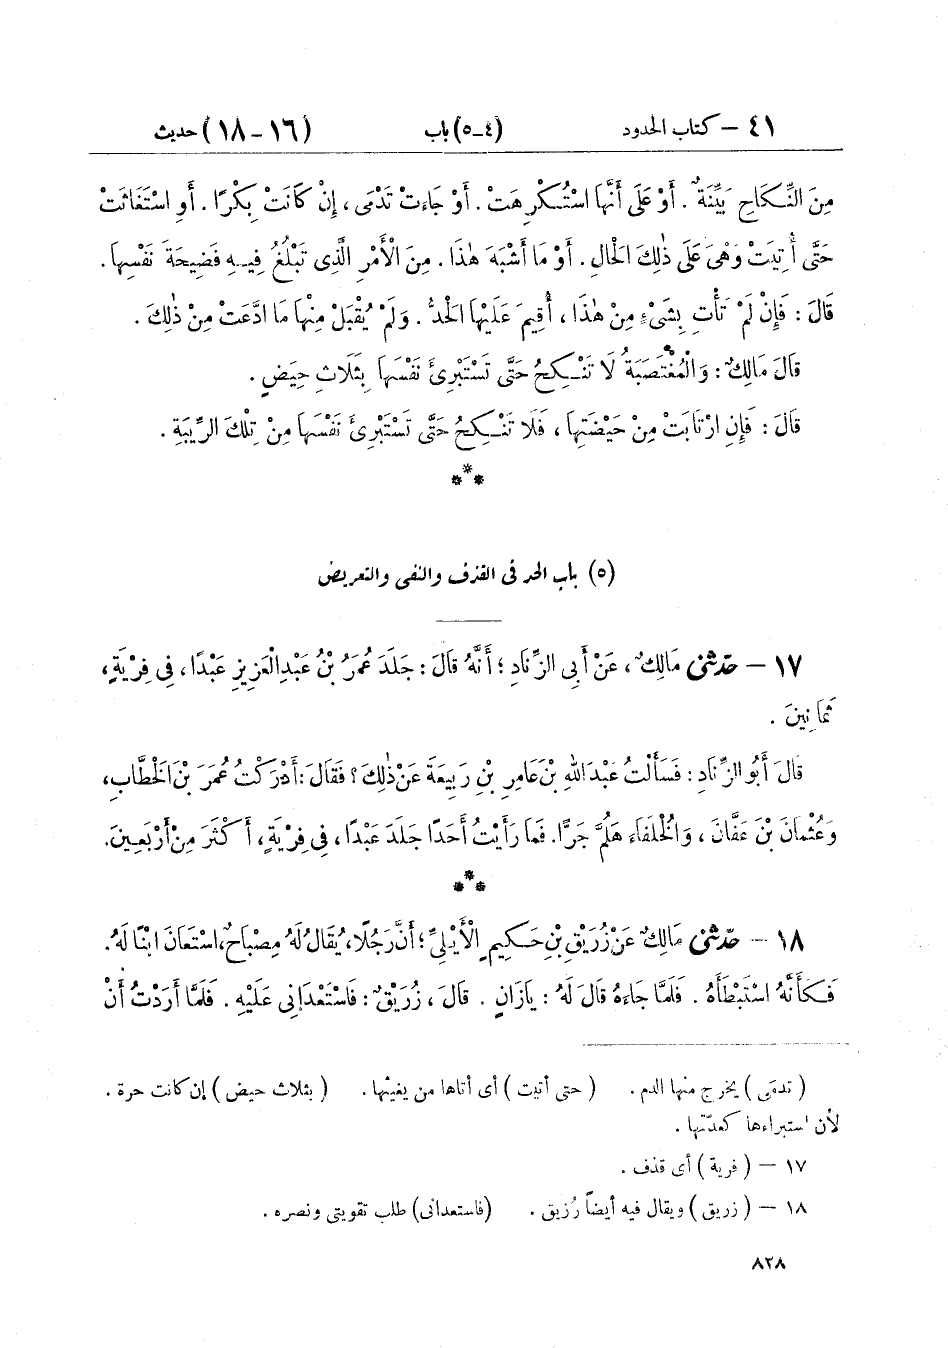 ٤١ – كتاب الحدود (٤-٥) باب (١٦ - ١٨) حديث
مِنَ النِّكَاحِ بَيِّنَةٌ . أَوْ عَلَى أَنَّهَا اسْتُكْرِهَتْ . أَوْ جَاءَتْ تَدْمَى ، إِنْ كَانَتْ بِكْرًا . أَوِ اسْتَغَاثَتْ
حَتَّى أُتِيَتْ وَهِىَ عَلَى ذٰلِكَ الْحَالِ . أَوْ مَا أَشْبَهَ هٰذَا . مِنَ الْأَمْرِ الَّذِى تَبْلُغُ فِيهِ فَضِيحَةَ نَفْسِهَا .
قَالَ : فَإِنْ لَمْ تَأْتِ بِشَىْءٍ مِنْ هٰذَا ، أُقِيمَ عَلَيْهَا الْحَدُّ . وَلَمْ يُقْبَلْ مِنْهَا مَا ادَّعَتْ مِنْ ذٰلِكَ .
قَالَ مَالِكٌ : وَالْمُغْتَصَبَةُ لَا تَنْكِحُ حَتَّى تَسْتَبْرِئَ نَفْسَهَا بِثَلَاثِ حِيَضٍ .
قَالَ : فَإِنِ ارْتَابَتْ مِنْ حَيْضَتِهَا ، فَلَا تَنْكِحُ حَتَّى تَسْتَبْرِئَ نَفْسَهَا مِنْ تِلْكَ الرِّيبَةِ .
***
(٥) باب الحد فى القذف والنفى والتعريض
١٧ – حدّثنى مَالِكٌ ، عَنْ أَبِى الزِّنَادِ ؛ أَنَّهُ قَالَ : جَلَدَ عُمَرُ بْنُ عَبْدِ الْعَزِيزِ عَبْدًا ، فِى فِرْيَةٍ ،
ثَمَانِينَ .
قَالَ أَبُو الزِّنَادِ : فَسَأَلْتُ عَبْدَ اللهِ بْنَ عَامِرِ بْنِ رَبِيعَةَ عَنْ ذٰلِكَ ؟ فَقَالَ : أَدْرَكْتُ عُمَرَ بْنَ الْخَطَّابِ ،
وَعُثْمَانَ بْنَ عَفَّانَ ، وَالْخُلَفَاءَ هَلُمَّ جَرًّا . فَمَا رَأَيْتُ أَحَدًا جَلَدَ عَبْدًا ، فِى فِرْيَةٍ ، أَكْثَرَ مِنْ أَرْبَعِينَ .
***
١٨ – حدّثنى مَالِكٌ عَنْ زُرَيْقِ بْنِ حَكِيمٍ الْأَيْلِىِّ ؛ أَنَّ رَجُلًا ، يُقَالُ لَهُ مِصْبَاحٌ ، اسْتَعَانَ ابْنًا لَهُ .
فَكَأَنَّهُ اسْتَبْطَأَهُ . فَلَمَّا جَاءَهُ قَالَ لَهُ : يَازَانٍ . قَالَ ، زُرَيْقٌ : فَاسْتَعْدَانِى عَلَيْهِ . فَلَمَّا أَرَدْتُ أَنْ
( تدمَى ) يخرج منها الدم . ( حتى أتيت ) أى أتاها من يغيثها . ( بثلاث حيض ) إن كانت حرة .
لأن استبراءها كعدّتها .
١٧ – ( فرية ) أى قذف .
١٨ – ( زريق ) ويقال فيه أيضاً رُزيق . (فاستعدانى) طلب تقويتى ونصره .
٨٢٨